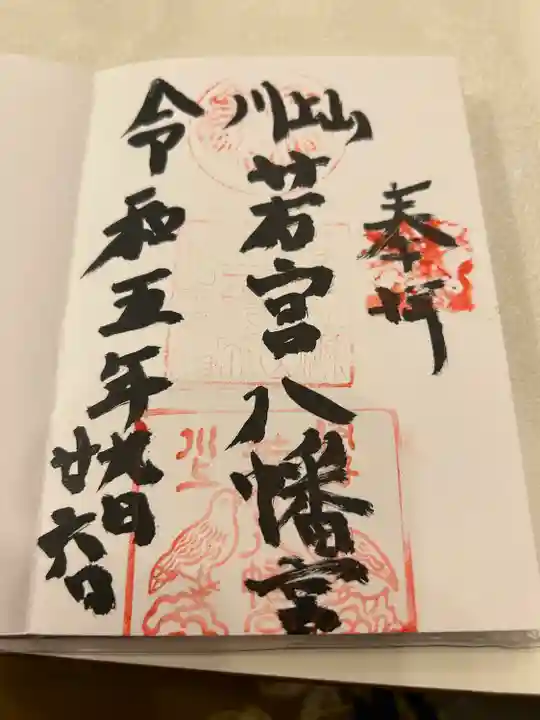 奉拝
川上山
若宮八幡宮
令和五年
九月
廿六日
川上